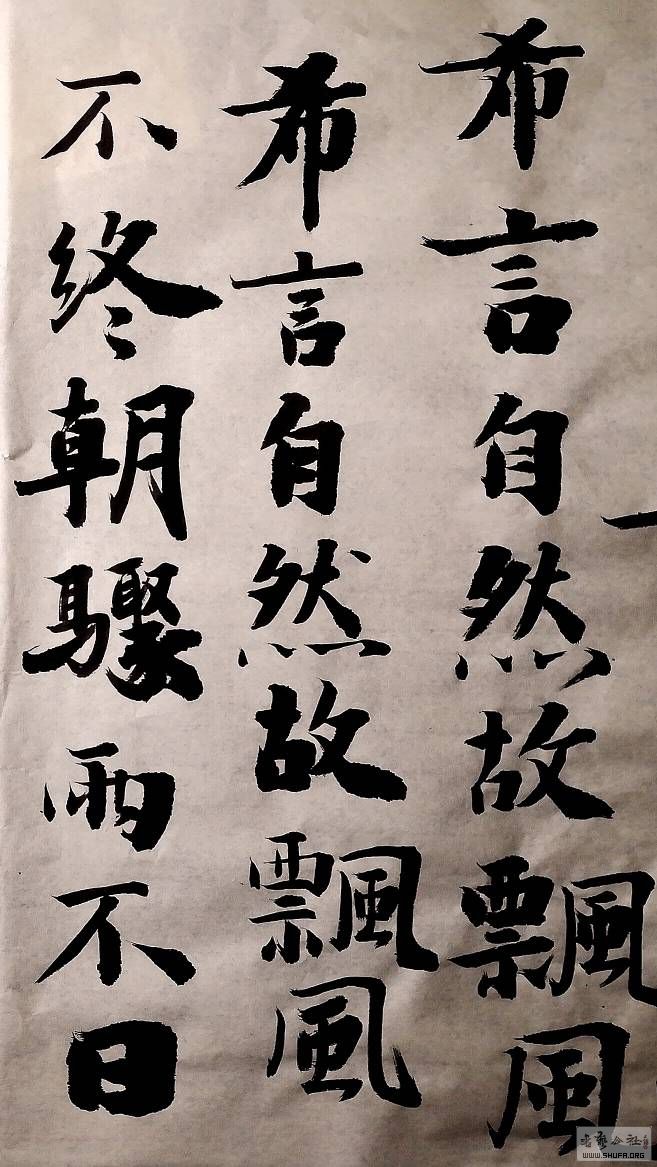 希言自然故飄風
希言自然故飄風
不終朝驟雨不日
WWW.SHUFA.ORG